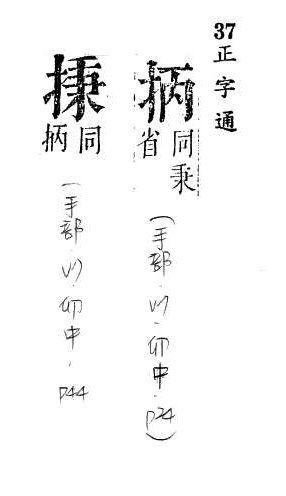 37正字通
抦
同秉
省
(手部 卯中 P24)
同
抦
(手部 卯中 P44